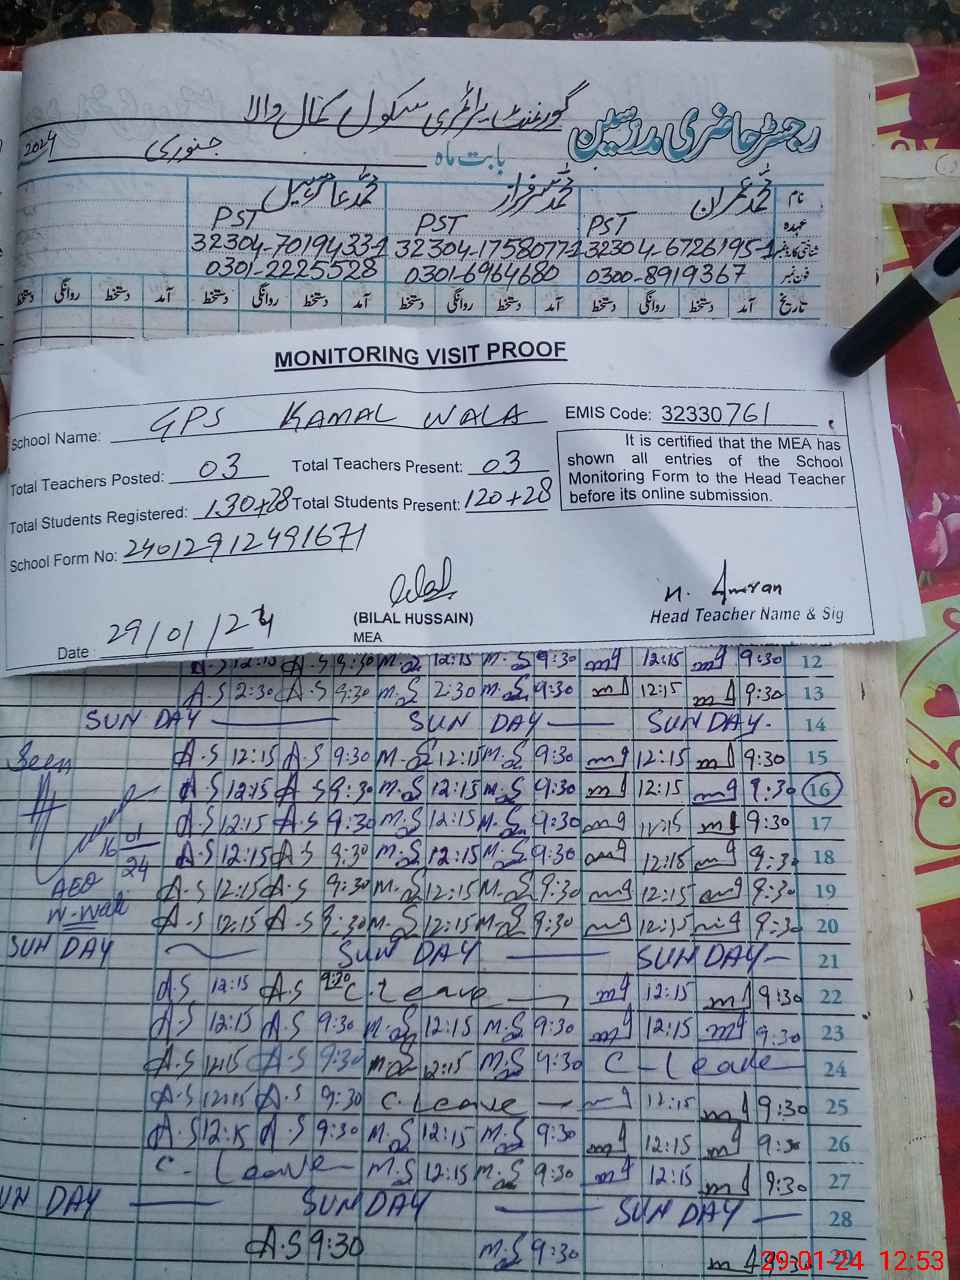 رجسٹر حاضری مدرسین گورنمنٹ پرائمری سکول کمال والا
بابت ماہ جنوری 2024
نام محمد عمران محمد سرفراز محمد عامر سہیل
عہدہ PST PST PST
شناختی کارڈ نمبر 32304-6726195-1 32304-1758077-1 32304-7019433-1
فون نمبر 0300-8919367 0301-6964680 0301-2225528
تاریخ آمد دستخط روانگی دستخط آمد دستخط روانگی دستخط آمد دستخط روانگی دستخط آمد دستخط روانگی دستخط
MONITORING VISIT PROOF
School Name: GPS KAMAL WALA EMIS Code: 32330761
Total Teachers Posted: 03 Total Teachers Present: 03
Total Students Registered: 130+28 Total Students Present: 120+28
It is certified that the MEA has
shown all entries of the School
Monitoring Form to the Head Teacher
before its online submission.
School Form No: 24012912491671
(BILAL HUSSAIN)
MEA
M. Imran
Head Teacher Name & Sig
Date: 29/01/24
A.S 12:15 A.S 9:30 M.S 12:15 M.S 9:30 12:15 9:30 12
A.S 2:30 A.S 9:30 M.S 2:30 M.S 9:30 12:15 9:30 13
SUNDAY SUNDAY SUNDAY 14
Seen A.S 12:15 A.S 9:30 M.S 12:15 M.S 9:30 12:15 9:30 15
A.S 12:15 A.S 9:30 M.S 12:15 M.S 9:30 12:15 9:30 16
16 01 24 A.S 12:15 A.S 9:30 M.S 12:15 M.S 9:30 12:15 9:30 17
A.S 12:15 A.S 9:30 M.S 12:15 M.S 9:30 12:15 9:30 18
AEO A.S 12:15 A.S 9:30 M.S 12:15 M.S 9:30 12:15 9:30 19
A.S 12:15 A.S 9:30 M.S 12:15 M.S 9:30 12:15 9:30 20
SUNDAY SUNDAY SUNDAY 21
A.S 12:15 A.S 9:30 C. Leave 12:15 9:30 22
A.S 12:15 A.S 9:30 M.S 12:15 M.S 9:30 12:15 9:30 23
A.S 12:15 A.S 9:30 M.S 12:15 M.S 9:30 C-Leave 24
A.S 12:15 A.S 9:30 C. Leave 12:15 9:30 25
A.S 12:15 A.S 9:30 M.S 12:15 M.S 9:30 12:15 9:30 26
C-Leave M.S 12:15 M.S 9:30 12:15 9:30 27
SUNDAY SUNDAY SUNDAY 28
A.S 9:30 M.S 9:30 9:30 29
29-01-24 12:53